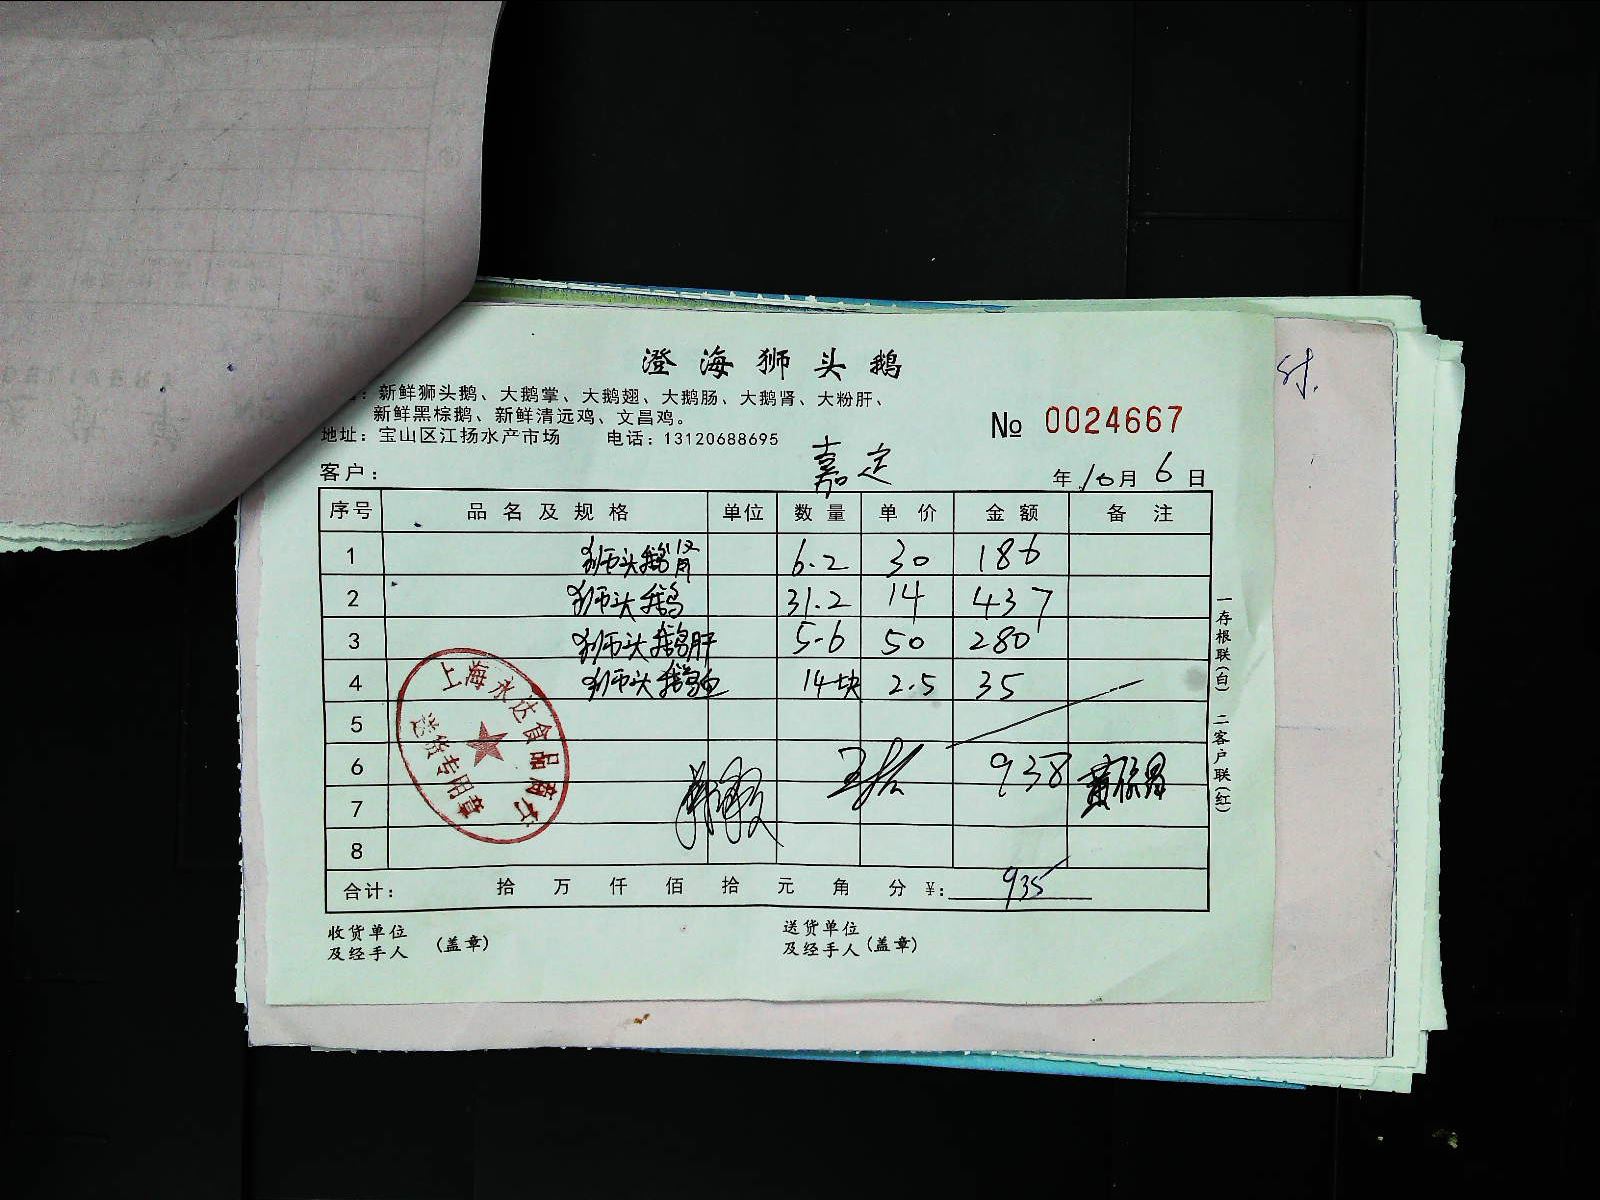 澄海狮头鹅
：新鲜狮头鹅、大鹅掌、大鹅翅、大鹅肠、大鹅肾、大粉肝、
新鲜黑棕鹅、新鲜清远鸡、文昌鸡。
№ 0024667
地址：宝山区江扬水产市场 电话：13120688695
客户： 嘉定 年10月6日
序号 品名及规格 单位 数量 单价 金额 备注
1 狮头鹅肾 6.2 30 186
2 狮头鹅 31.2 14 437
3 狮头鹅肝 5.6 50 280
4 狮头鹅 14块 2.5 35
5
6 938
7
8
合计： 拾 万 仟 佰 拾 元 角 分 ¥: 935
收货单位
及经手人 (盖章)
送货单位
及经手人 (盖章)
一存根联(白) 二客户联(红)
上海永达食品商行
送货专用章